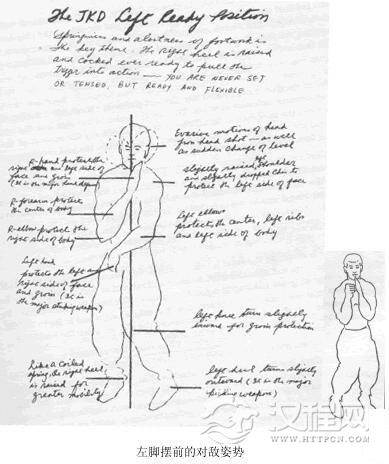 The JKD Left Ready Position
Springiness and alertness of footwork is
the key theme. The right heel is raised
and cocked ever ready to pull the
trigger into action — YOU ARE NEVER SET
OR TENSED, BUT READY AND FLEXIBLE
Evasive motions of head
from head shot — as well
as sudden change of level
R-hand protect the
right and left side of
face and groin
(It is the major hand guard)
slightly raised shoulder
and slightly dropped chin to
protect the left side of face
R-forearm protect
the center of body
R-elbow protect the
right side of body
Left elbow
protects the center, left ribs
and left side of body
Left hand
protects the left and
right side of face
and groin (It is
the major striking weapon)
left knee turn slightly
inward for groin protection
Like a coiled
spring, the right heel
is raised for
greater mobility
left heel turns slightly
outward (It is the major
kicking weapon)
汉程网
WWW.HTTPCN.COM
左脚摆前的对敌姿势